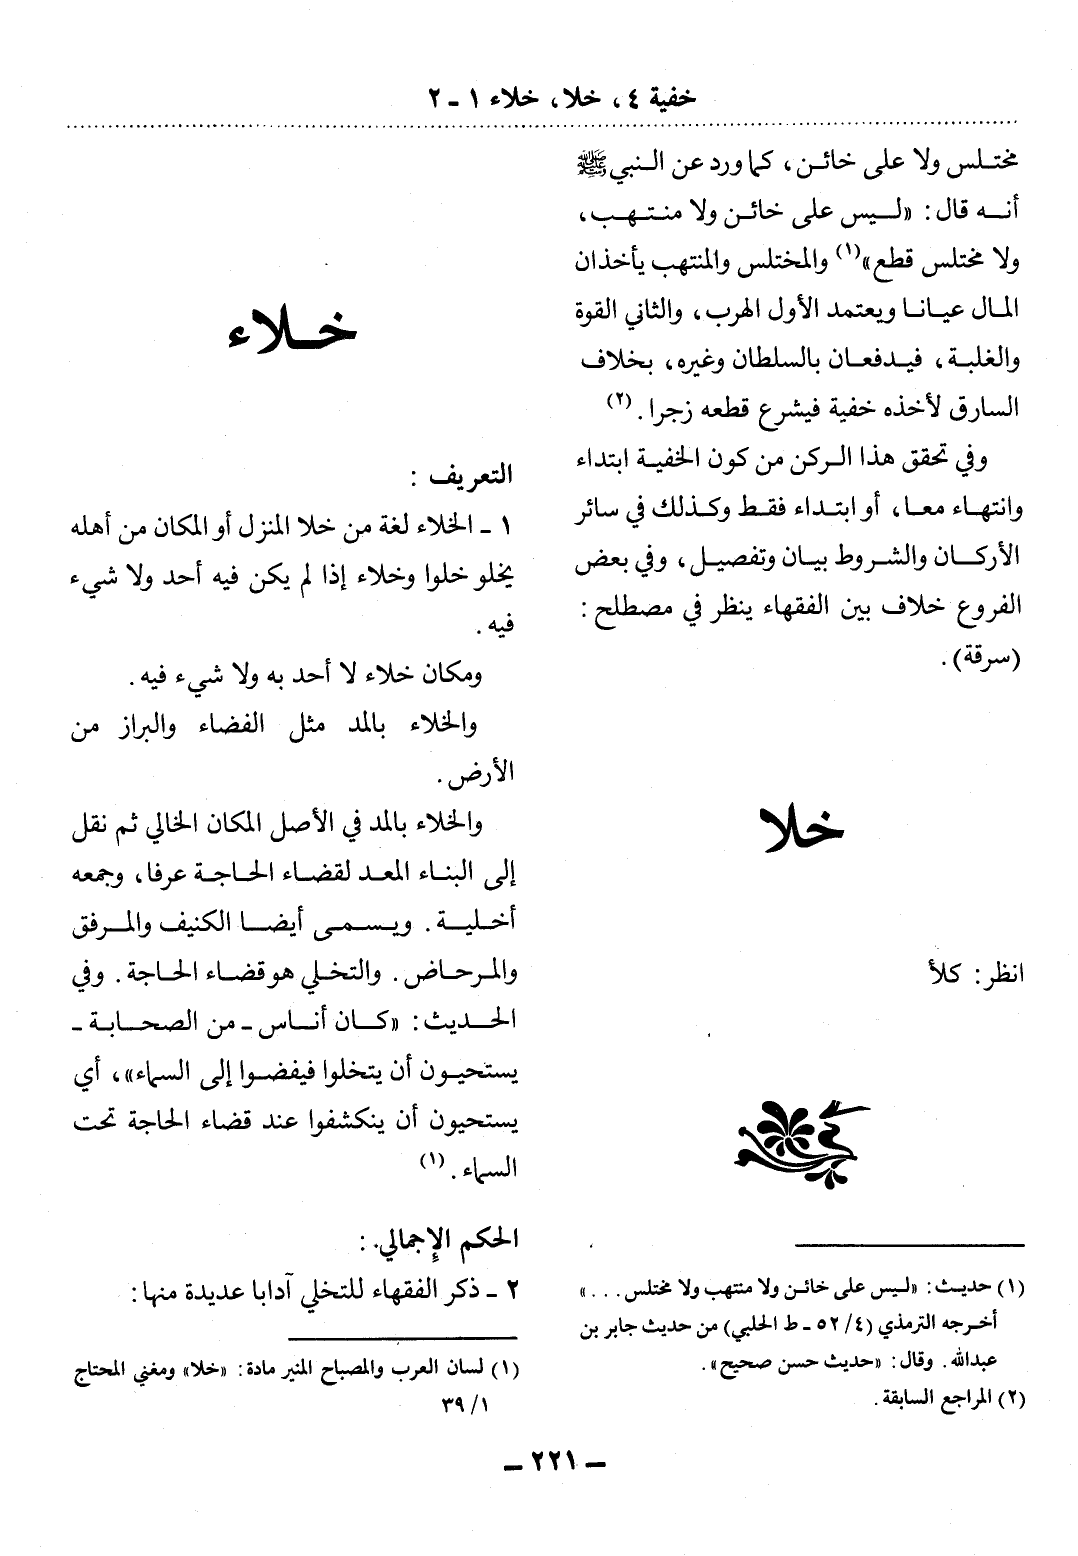 خفية ٤، خلا، خلاء ١ - ٢
مختلس ولا على خائن، كما ورد عن النبي ﷺ
أنه قال: «ليس على خائن ولا منتهب،
ولا مختلس قطع»(١) والمختلس والمنتهب يأخذان
المال عيانا ويعتمد الأول الهرب، والثاني القوة
والغلبة، فيدفعان بالسلطان وغيره، بخلاف
السارق لأخذه خفية فيشرع قطعه زجرا. (٢)
وفي تحقق هذا الركن من كون الخفية ابتداء
وانتهاء معا، أو ابتداء فقط وكذلك في سائر
الأركان والشروط بيان وتفصيل، وفي بعض
الفروع خلاف بين الفقهاء ينظر في مصطلح:
(سرقة).
خلا
انظر: كلأ
(١) حديث: «ليس على خائن ولا منتهب ولا مختلس . . . »
أخرجه الترمذي (٤/ ٥٢ - ط الحلبي) من حديث جابر بن
عبدالله. وقال: «حديث حسن صحيح».
(٢) المراجع السابقة.
خلاء
التعريف:
١ - الخلاء لغة من خلا المنزل أو المكان من أهله
يخلو خلوا وخلاء إذا لم يكن فيه أحد ولا شيء
فيه.
ومكان خلاء لا أحد به ولا شيء فيه.
والخلاء بالمد مثل الفضاء والبراز من
الأرض.
والخلاء بالمد في الأصل المكان الخالي ثم نقل
إلى البناء المعد لقضاء الحاجة عرفا، وجمعه
أخلية. ويسمى أيضا الكنيف والمرفق
والمرحاض. والتخلي هو قضاء الحاجة. وفي
الحديث: «كان أناس - من الصحابة -
يستحيون أن يتخلوا فيفضوا إلى السماء»، أي
يستحيون أن ينكشفوا عند قضاء الحاجة تحت
السماء. (١)
الحكم الإجمالي:
٢ - ذكر الفقهاء للتخلي آدابا عديدة منها:
(١) لسان العرب والمصباح المنير مادة: «خلا» ومغني المحتاج
١/ ٣٩
- ٢٢١ -